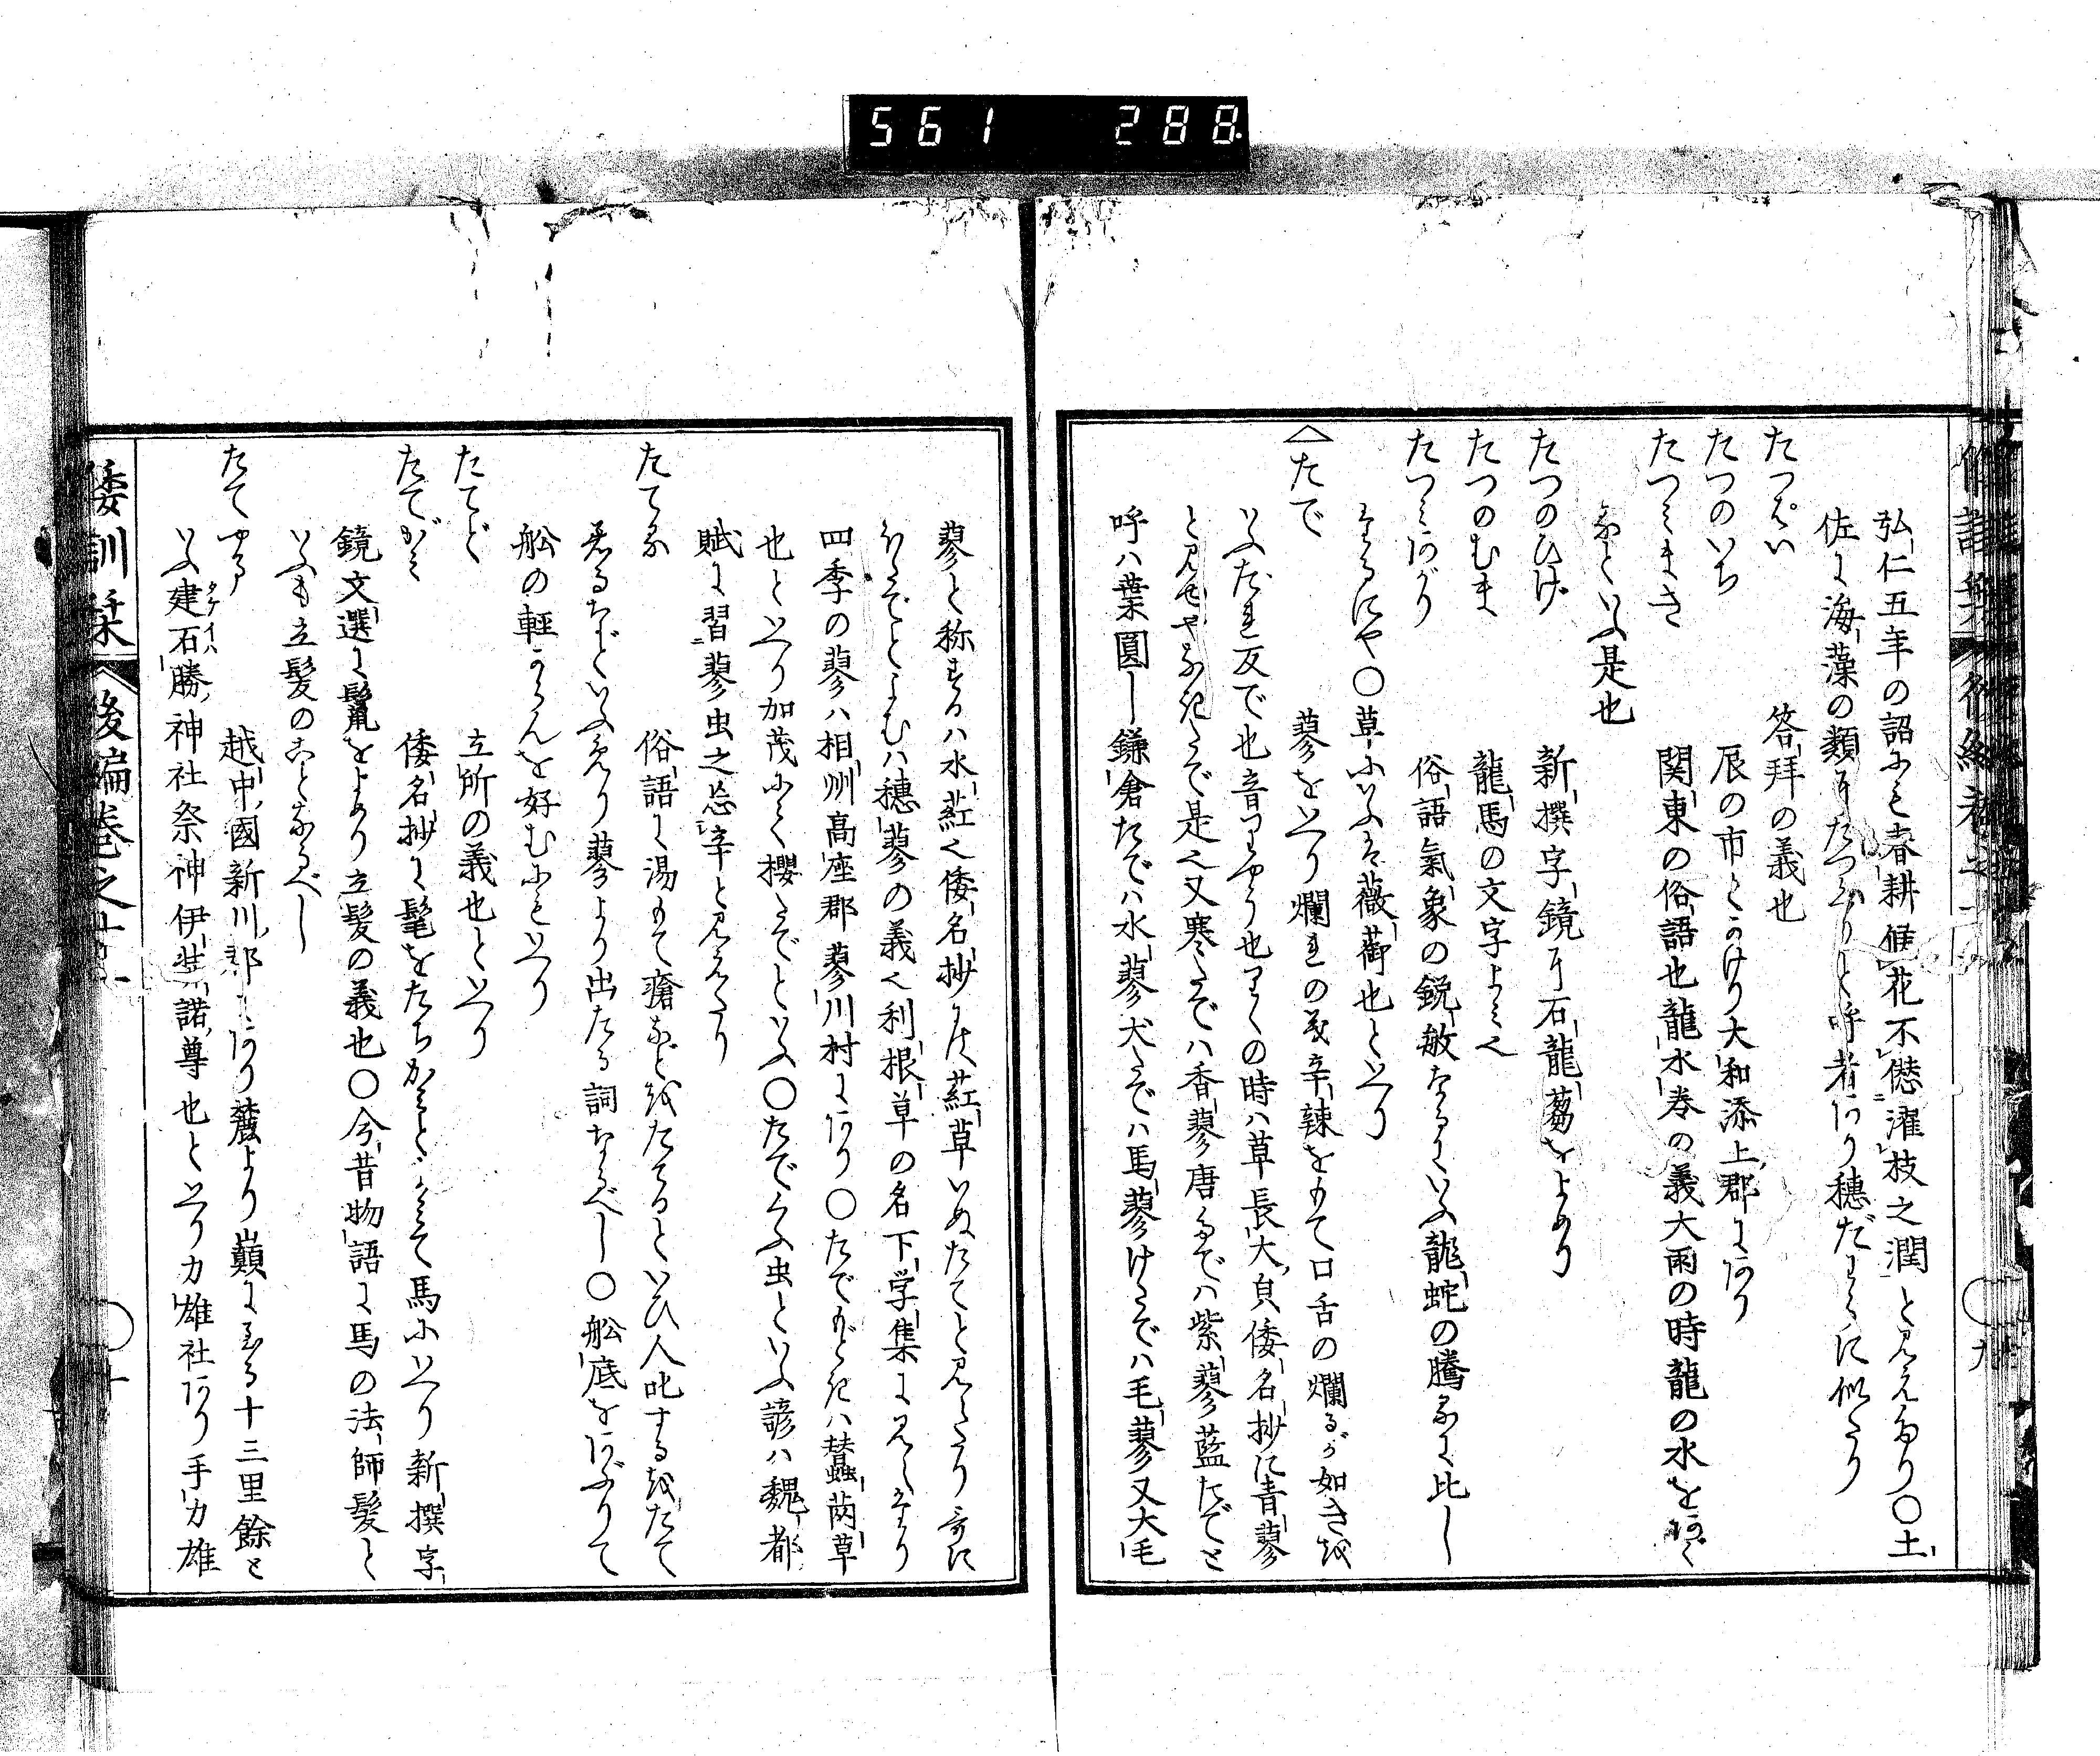 561 288
弘仁五年の詔にも春耕候花不愆濯枝之潤と見えたり〇土
佐に海藻の類にたつふりと呼者あり穂だわらに似たり
たつはい 答拝の義也
たつのいち 辰の市とかけり大和添上郡にあり
たつまき 関東の俗語也龍水巻の義大雨の時龍の水をあぐ
なといふ是也
たつのひげ 新撰字鏡に石龍蒭をよめり
たつのむま 龍馬の文字よみ也
たつみあがり 俗語氣象の鋭敏なるにいふ龍蛇の騰るに比し
たるにや〇草にいふは薇蘅也といへり
たで 蓼をいへり爛れの義辛辣をもて口舌の爛るが如きを
いふたれ反で也音れうの時ハ草長大貌倭名抄に青蓼
と見ゆやなぎたで是也又寒たでハ香蓼唐たでハ紫蓼藍たでと
呼ハ葉圓し鎌倉たでハ水蓼犬たでハ馬蓼けたでハ毛蓼又大毛
蓼と称するハ水葒也倭名抄に葒草いぬたでと見えたり歌に
ほたでとよむハ穂蓼の義也利根草の名下学集に見えたり
四季の蓼ハ相州高座郡蓼川村にあり〇たでもどきハ蠶茵草
也といへり加茂にて櫻たでといふ〇たでくふ虫といふ諺ハ魏都
賦に習蓼虫之忘辛と見えたり
たてる 俗語に湯もて瘡などをたてるといひ人叱するをたて
らるなどいふめり蓼より出たる詞なるべし〇舩底をあぶりて
舩の軽からんを好むにもいへり
たてど 立所の義也といへり
たてがみ 倭名抄に髦をたちかみといへり馬にいへり新撰字
鏡文選に鬣をよめり立髪の義也〇今昔物語に馬の法師髪と
いふも立髪のことなるべし
たてやま 越中國新川郡にあり麓より巔に至る十三里餘と
いふ建石勝神社祭神伊弉諾尊也といへり力雄社あり手力雄
倭訓栞 後編巻之十一 十